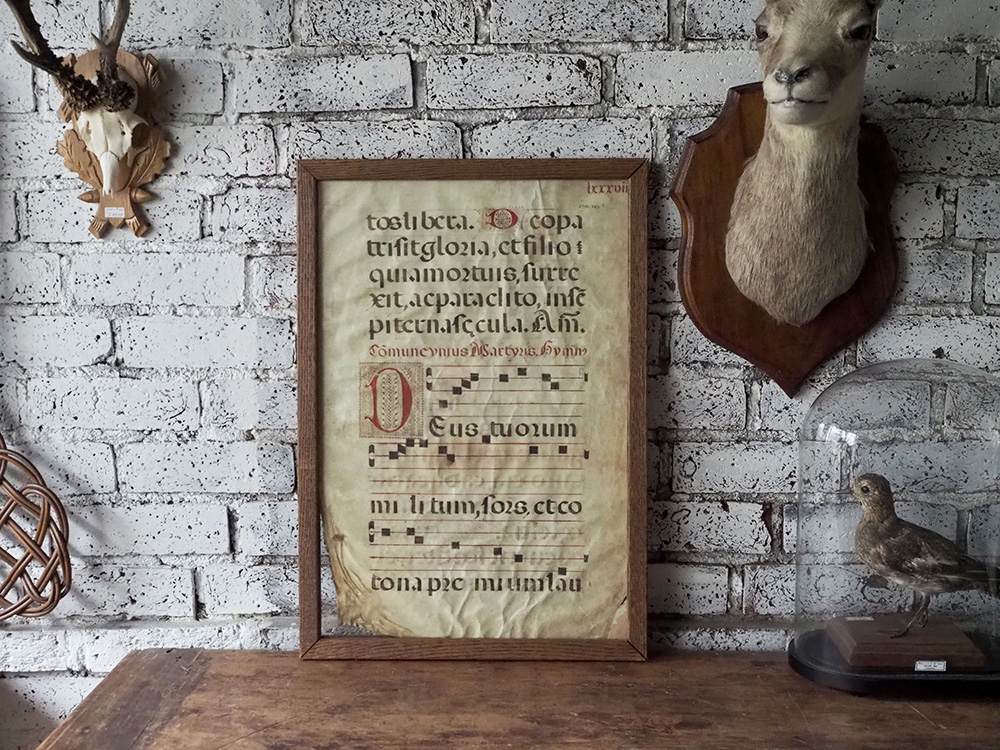 lxxxvii
toslibera. D eopa
trisitgloria, et filio ⁊
quiamortuis, surre
xit, acparaclito, insē
piternasęcula. Am̄.
Cōmunevnius Martyris. Hymn9
Deus tuorum
mi li tum, sors, etco
ronapre miumlau